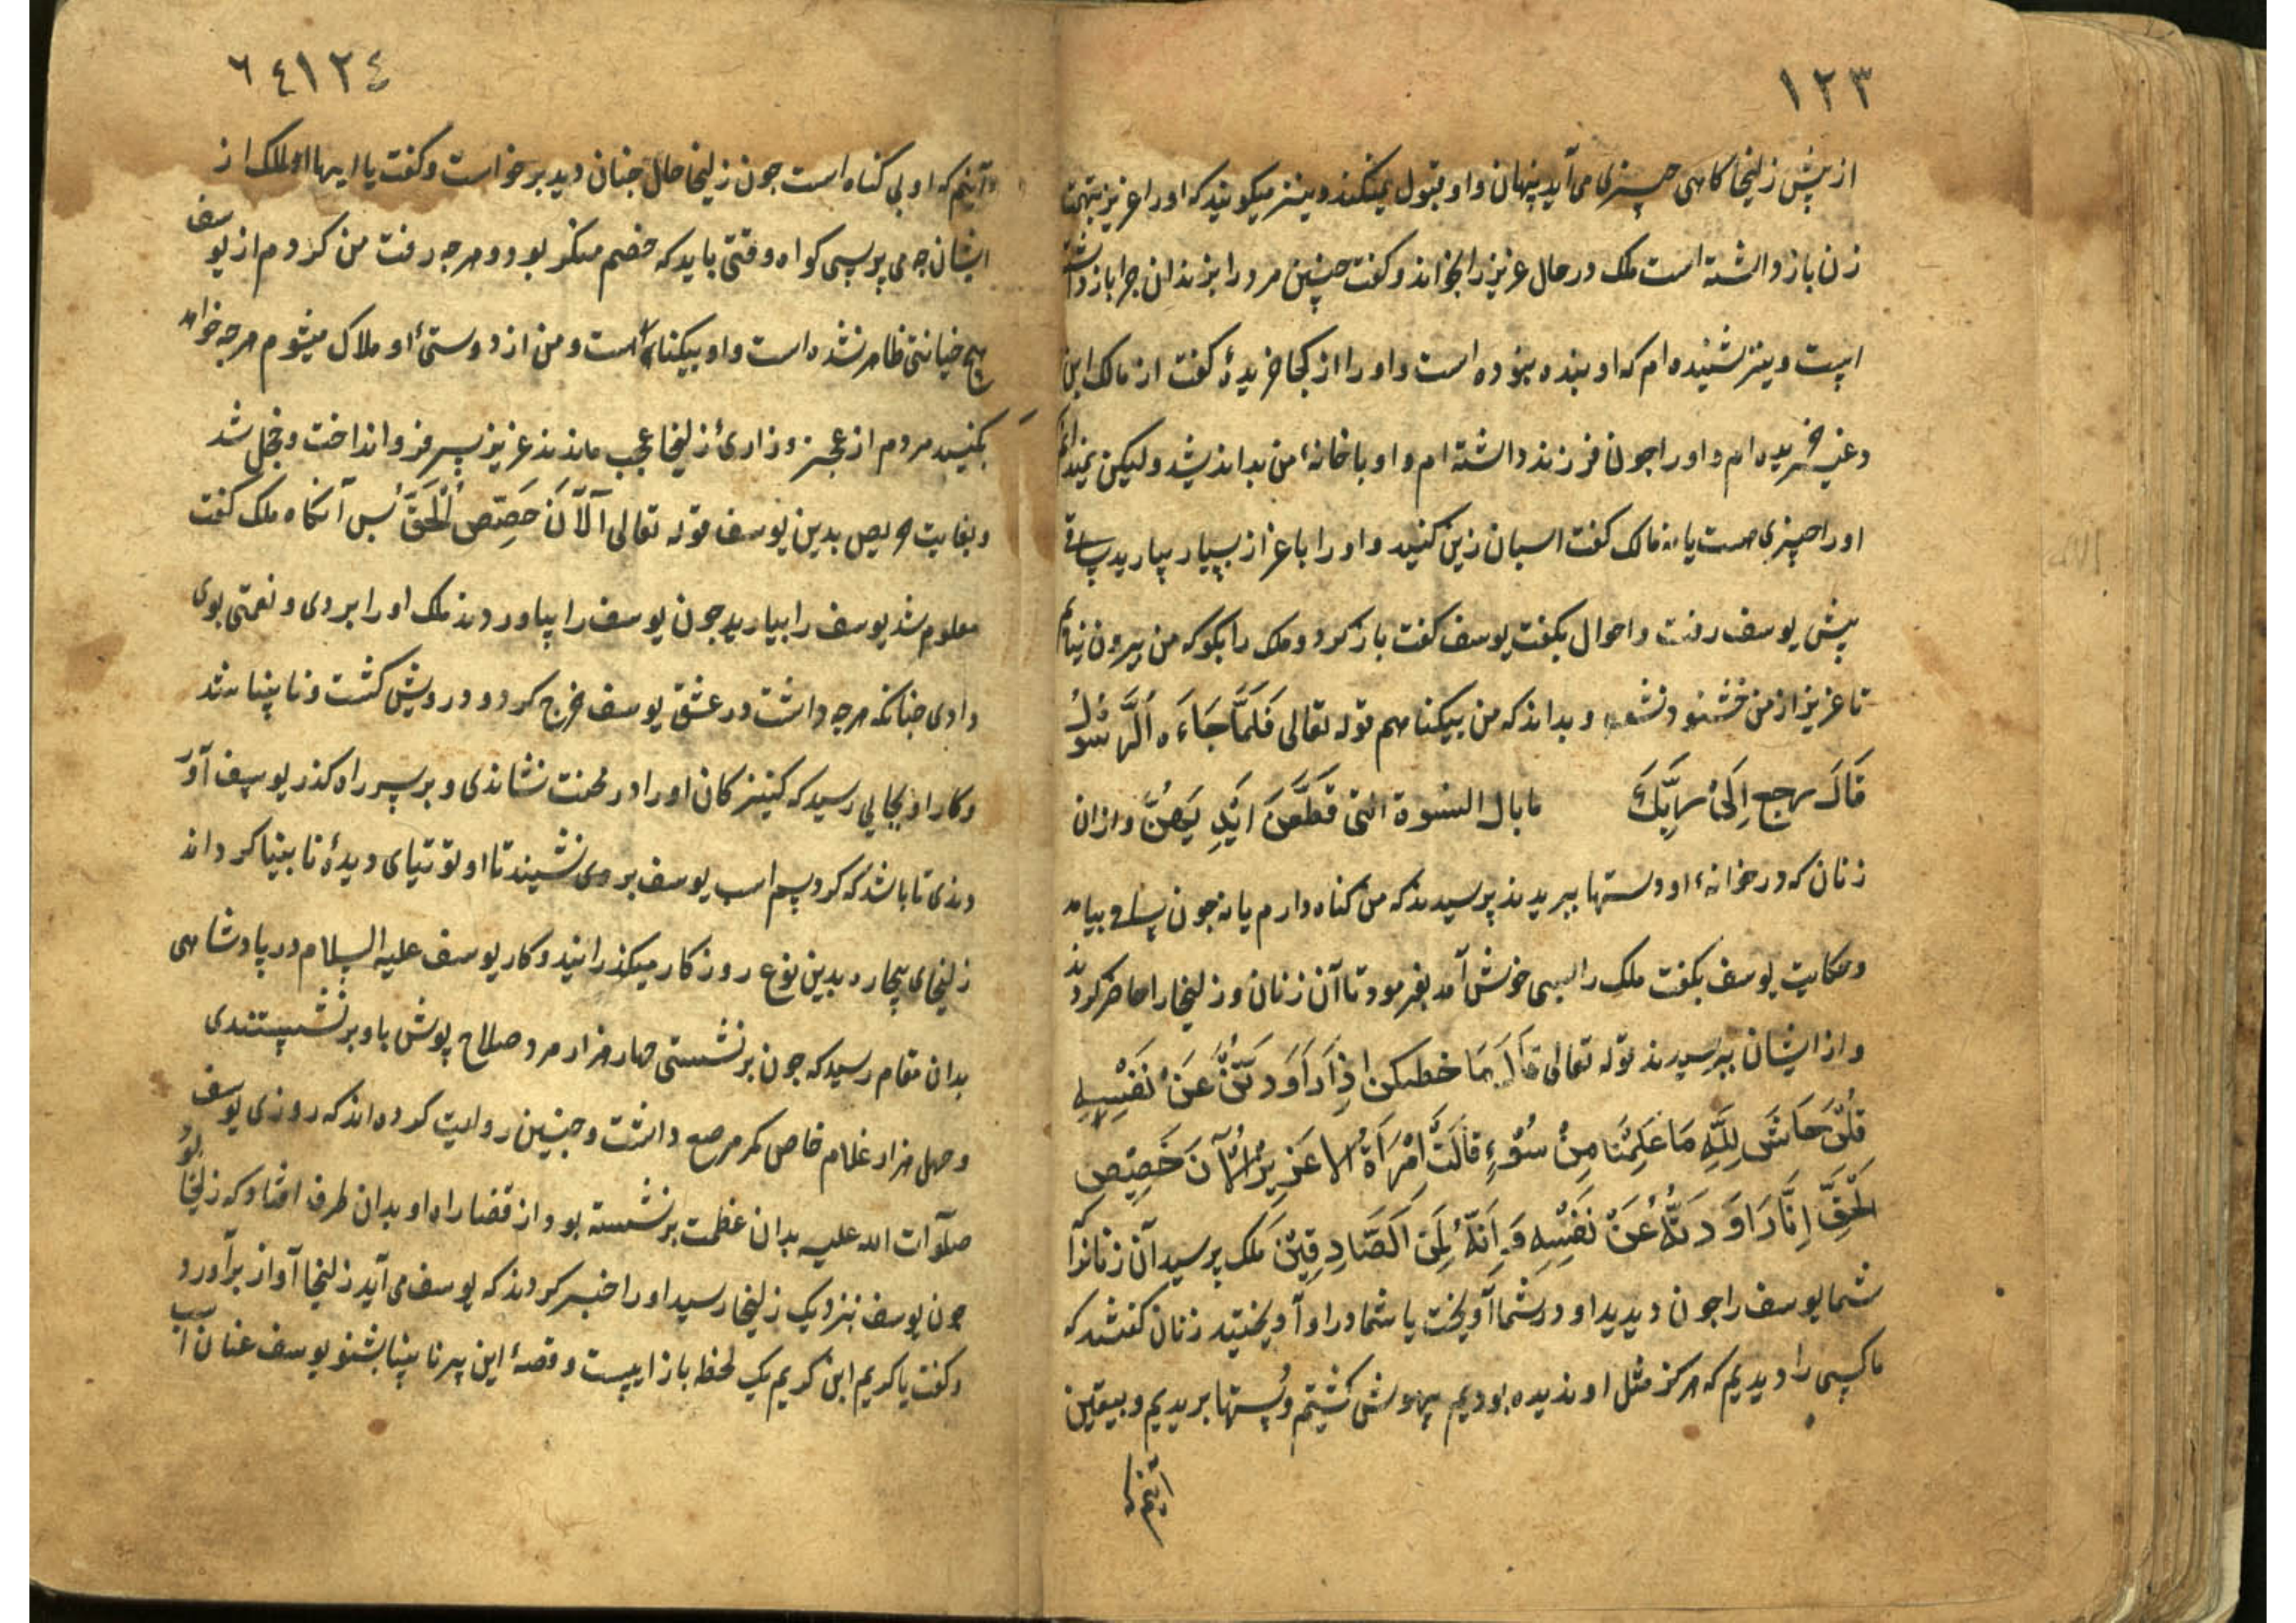 ١٢٣
از پیش زلیخا کاهی چیزی می آید پنهان و او قبول نمیکند و نیز میکویند که او را عزیز بتهمت
زن باز داشته است ملک در حال عزیز را بخواند و کفت چنین مرد را بزندان چرا باز داشته
است و نیز شنیده ام که او بنده نبوده است و او را از کجا خریدهٔ کفت از مالک ابن
دعر خریده ام و او را جون فرزند داشته ام و او با خانهٔ من بد اندیشد و لیکن نمیدانم
او را چیزی هست یا نه مالک کفت اسبان زین کنید و او را باعزاز بسیار بیارید ساقی
پیش یوسف رفت و احوال بکفت یوسف کفت باز کرد و ملک را بکو که من بیرون نیایم
تا عزیز از من خشنود نشود و بداند که من بیکناهم قوله تعالی فَلَمَّا جَاءَهُ الرَّسُولُ
قَالَ ارجع اِلَیٰ رَبِّكَ مابال النسوة التی قَطَّعْنَ اَیْدِیَهُنَّ و از ان
زنان که در خانهٔ او دستها ببریدند پرسیدند که من کناه دارم یا نه جون ساقی بیامد
و حکایت یوسف بکفت ملک را بسی خوش آمد بفرمود تا آن زنان و زلیخا را حاضر کردند
و از ایشان بپرسیدند قوله تعالی قَالَ مَا خطبکن اِذْ رَاوَدْتُنَّ عَنْ نَفْسِهِ
قُلْنَ حَاشَ لِلّٰهِ مَا عَلِمْنَا مِنْ سُوْءٍ قَالَتْ اِمْرَاَةُ الاعَزِیْزُ الْآنَ حَصِحَص
الْحَقُّ اِنَّا رَاوَدتُّهُ عَنْ نَفْسِهِ وَاِنَّهُ لَمِنَ الصَّادِقِیْنَ ملک پرسید آن زنانرا که
شما یوسف را جون دیدید او در شما آویخت یا شما در او آویختید زنان کفتند که
ما کسی را دیدیم که هرکز مثل او ندیده بودیم بیهوش کشتیم و دستها بریدیم و بیقین
دانیم که
٦٤ ١٢٤
دانیم که او بی کناه است جون زلیخا حال جنان دید برخواست و کفت یا ایها الملک از
ایشان جه می پرسی کواه وقتی باید که خصم منکر بود و هرجه رفت من کردم از یوسف
هیچ خیانتی ظاهر نشده است و او بیکناه است و من از دوستیٔ او هلاک میشوم هرجه خواهید
بکنید مردم از عجز و زاریٔ زلیخا عجب ماندند عزیز سر فرو انداخت و خجل شد
و بغایت حریص بدین یوسف قوله تعالی اَلْآنَ حَصِحَص الْحَقُّ پس آنکاه ملک کفت
معلوم شد یوسف را بیارید جون یوسف را بیاوردند ملک او را بردی و نعمتی بوی
دادی جنانکه هرجه داشت در عشق یوسف خرج کرد و درویش کشت و نابینا شد
و کار او بجایی رسید که کنیزکان او را در محنت نشاندی و بر سر راه کذر یوسف آور
دندی تا باشد که کرد سم اسب یوسف بروی نشیند تا او توتیای دیدهٔ نابینا کرداند
زلیخای بیجاره بدین نوع روزکار میکذرانید و کار یوسف علیه السلام در پادشاهی
بدان مقام رسید که جون برنشستی جهار هزار مرد صلاح پوش باو برنشستندی
و جهل هزار غلام خاص کمر مرصع داشت و جنین روایت کرده اند که روزی یوسف
صلوآت الله علیه بدان عظمت برنشسته بود از قضا راه او بدان طرف افتاد که زلیخا بود
جون یوسف بنزدیک زلیخا رسید او را خبر کردند که یوسف می آید زلیخا آواز برآورد
و کفت یا کریم ابن کریم یک لحظه باز ایست و قصهٔ این پیر نابینا بشنو یوسف عنان اسب